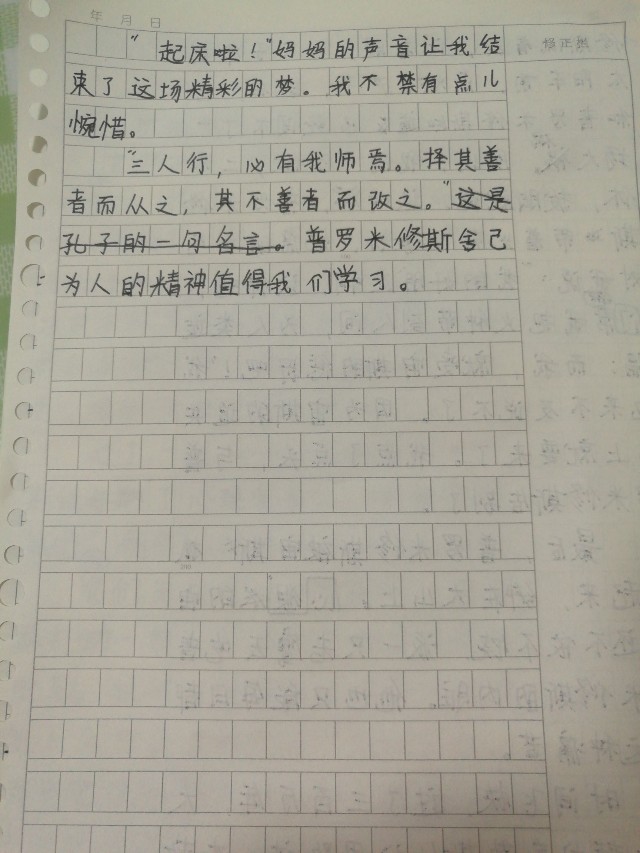 年 月 日
修正栏
“起床啦！”妈妈的声音让我结
束了这场精彩的梦。我不禁有点儿
惋惜。
“三人行，必有我师焉。择其善
者而从之，其不善者而改之。”这是
孔子的一句名言。普罗米修斯舍己
为人的精神值得我们学习。